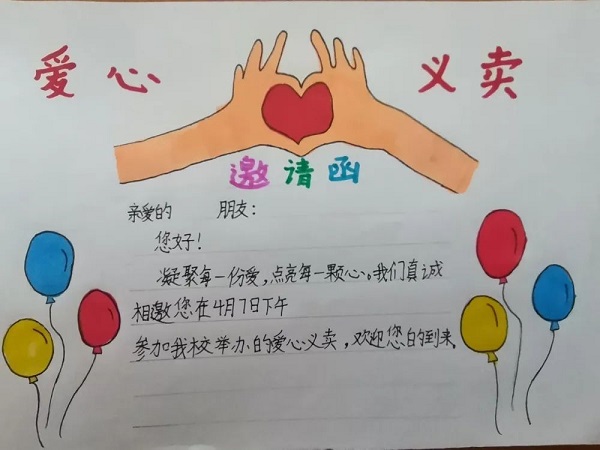 爱心 义卖
邀请函
亲爱的 朋友：
您好！
凝聚每一份爱，点亮每一颗心。我们真诚
相邀您在4月7日下午
参加我校举办的爱心义卖，欢迎您的到来